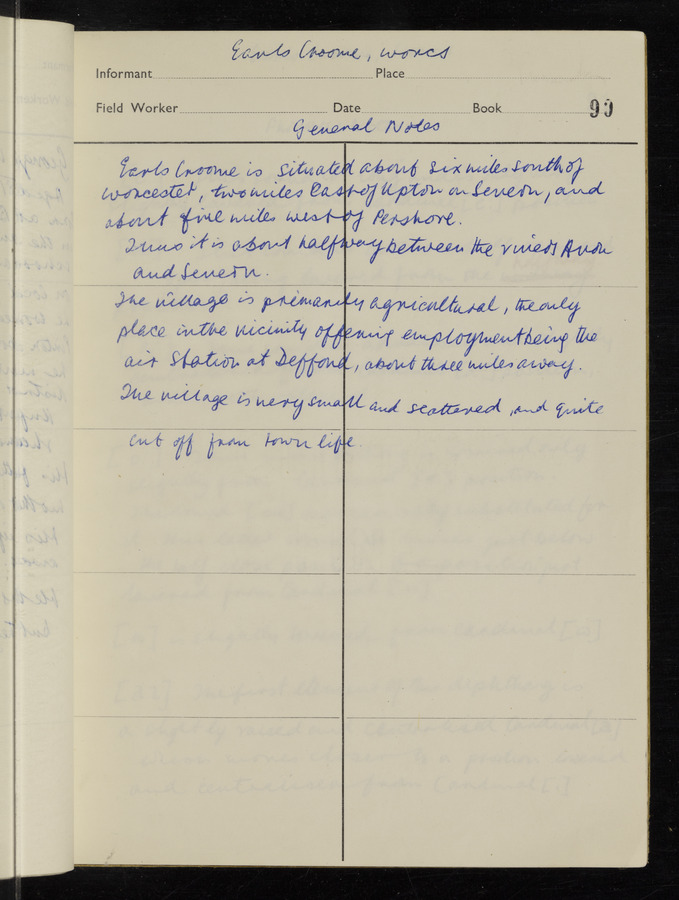 Earls Croome, Worcs
Informant Place
Field Worker Date Book 90
General Notes
Earls Croome is situated about six miles south of
Worcester, two miles East of Upton on Severn, and
about five miles west of Pershore.
Thus it is about halfway between the rivers Avon
and Severn.
The village is primarily agricultural, the only
place in the vicinity offering employment being the
air Station at Defford, about three miles away.
The village is very small and scattered, and quite
cut off from town life.